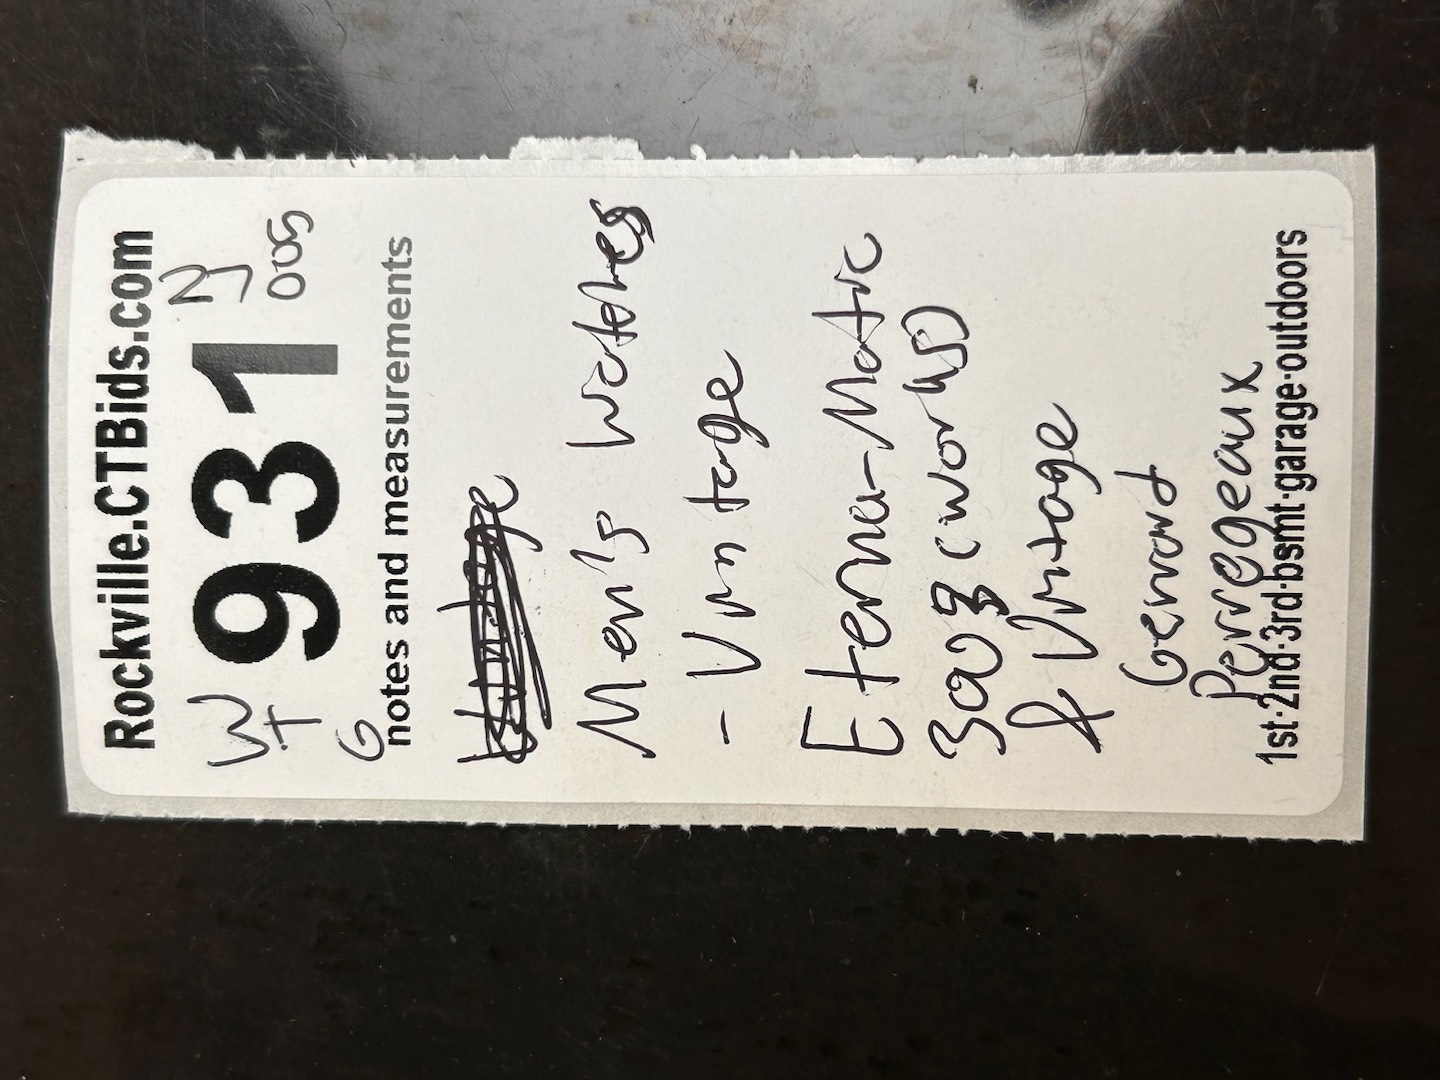 Rockville.CTBids.com
WT 931 NJ
G 005
notes and measurements
Men's Watches
- Vintage
Eterna-Matic
3003 (works)
& Vintage
Gerrard
Perregeaux
1st·2nd·3rd·bsmt·garage·outdoors